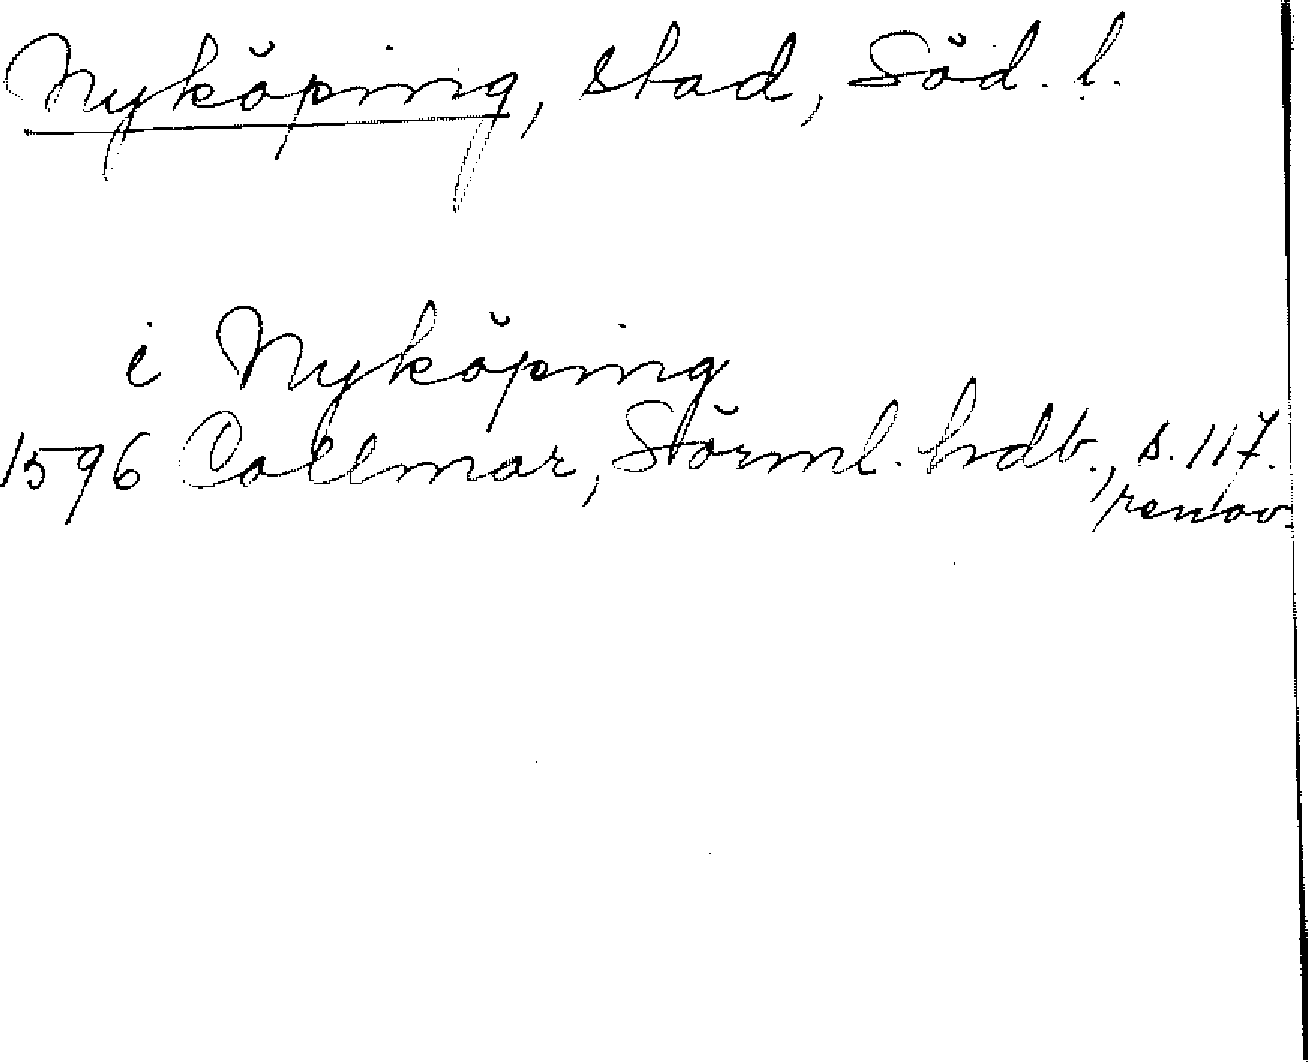 Nyköping, stad, Söd. l.
i Nyköping
1596 Collmar, Störml. hdb., s. 117.
renov.